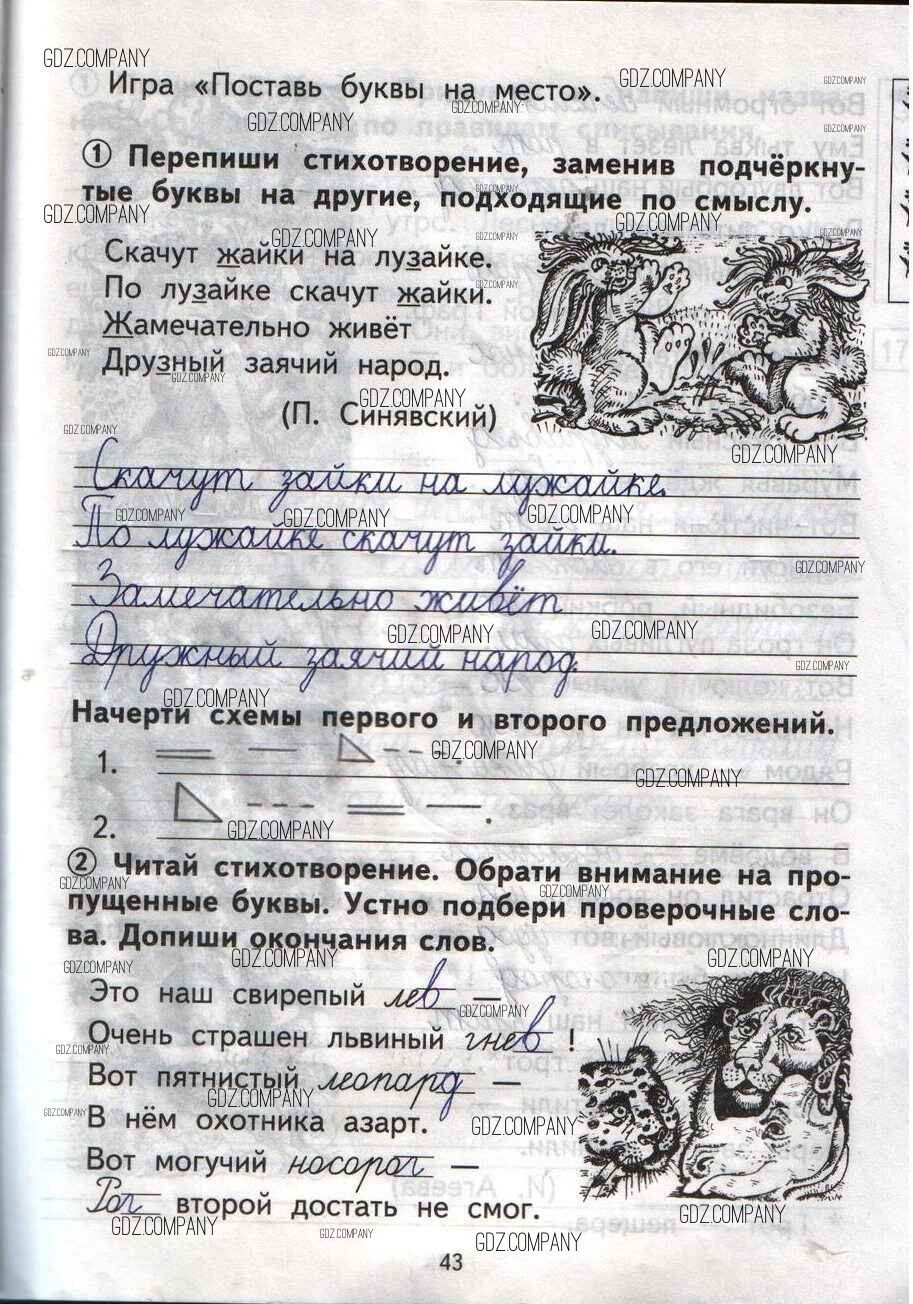 Игра «Поставь буквы на место».
① Перепиши стихотворение, заменив подчёркну-
тые буквы на другие, подходящие по смыслу.
Скачут жайки на лузайке.
По лузайке скачут жайки.
Жамечательно живёт
Друзный заячий народ.
(П. Синявский)
Скачут зайки на лужайке.
По лужайке скачут зайки.
Замечательно живёт
Дружный заячий народ.
Начерти схемы первого и второго предложений.
1.
2.
② Читай стихотворение. Обрати внимание на про-
пущенные буквы. Устно подбери проверочные сло-
ва. Допиши окончания слов.
Это наш свирепый лев —
Очень страшен львиный гнев !
Вот пятнистый леопард —
В нём охотника азарт.
Вот могучий носорог —
Рог второй достать не смог.
43
GDZ.COMPANY